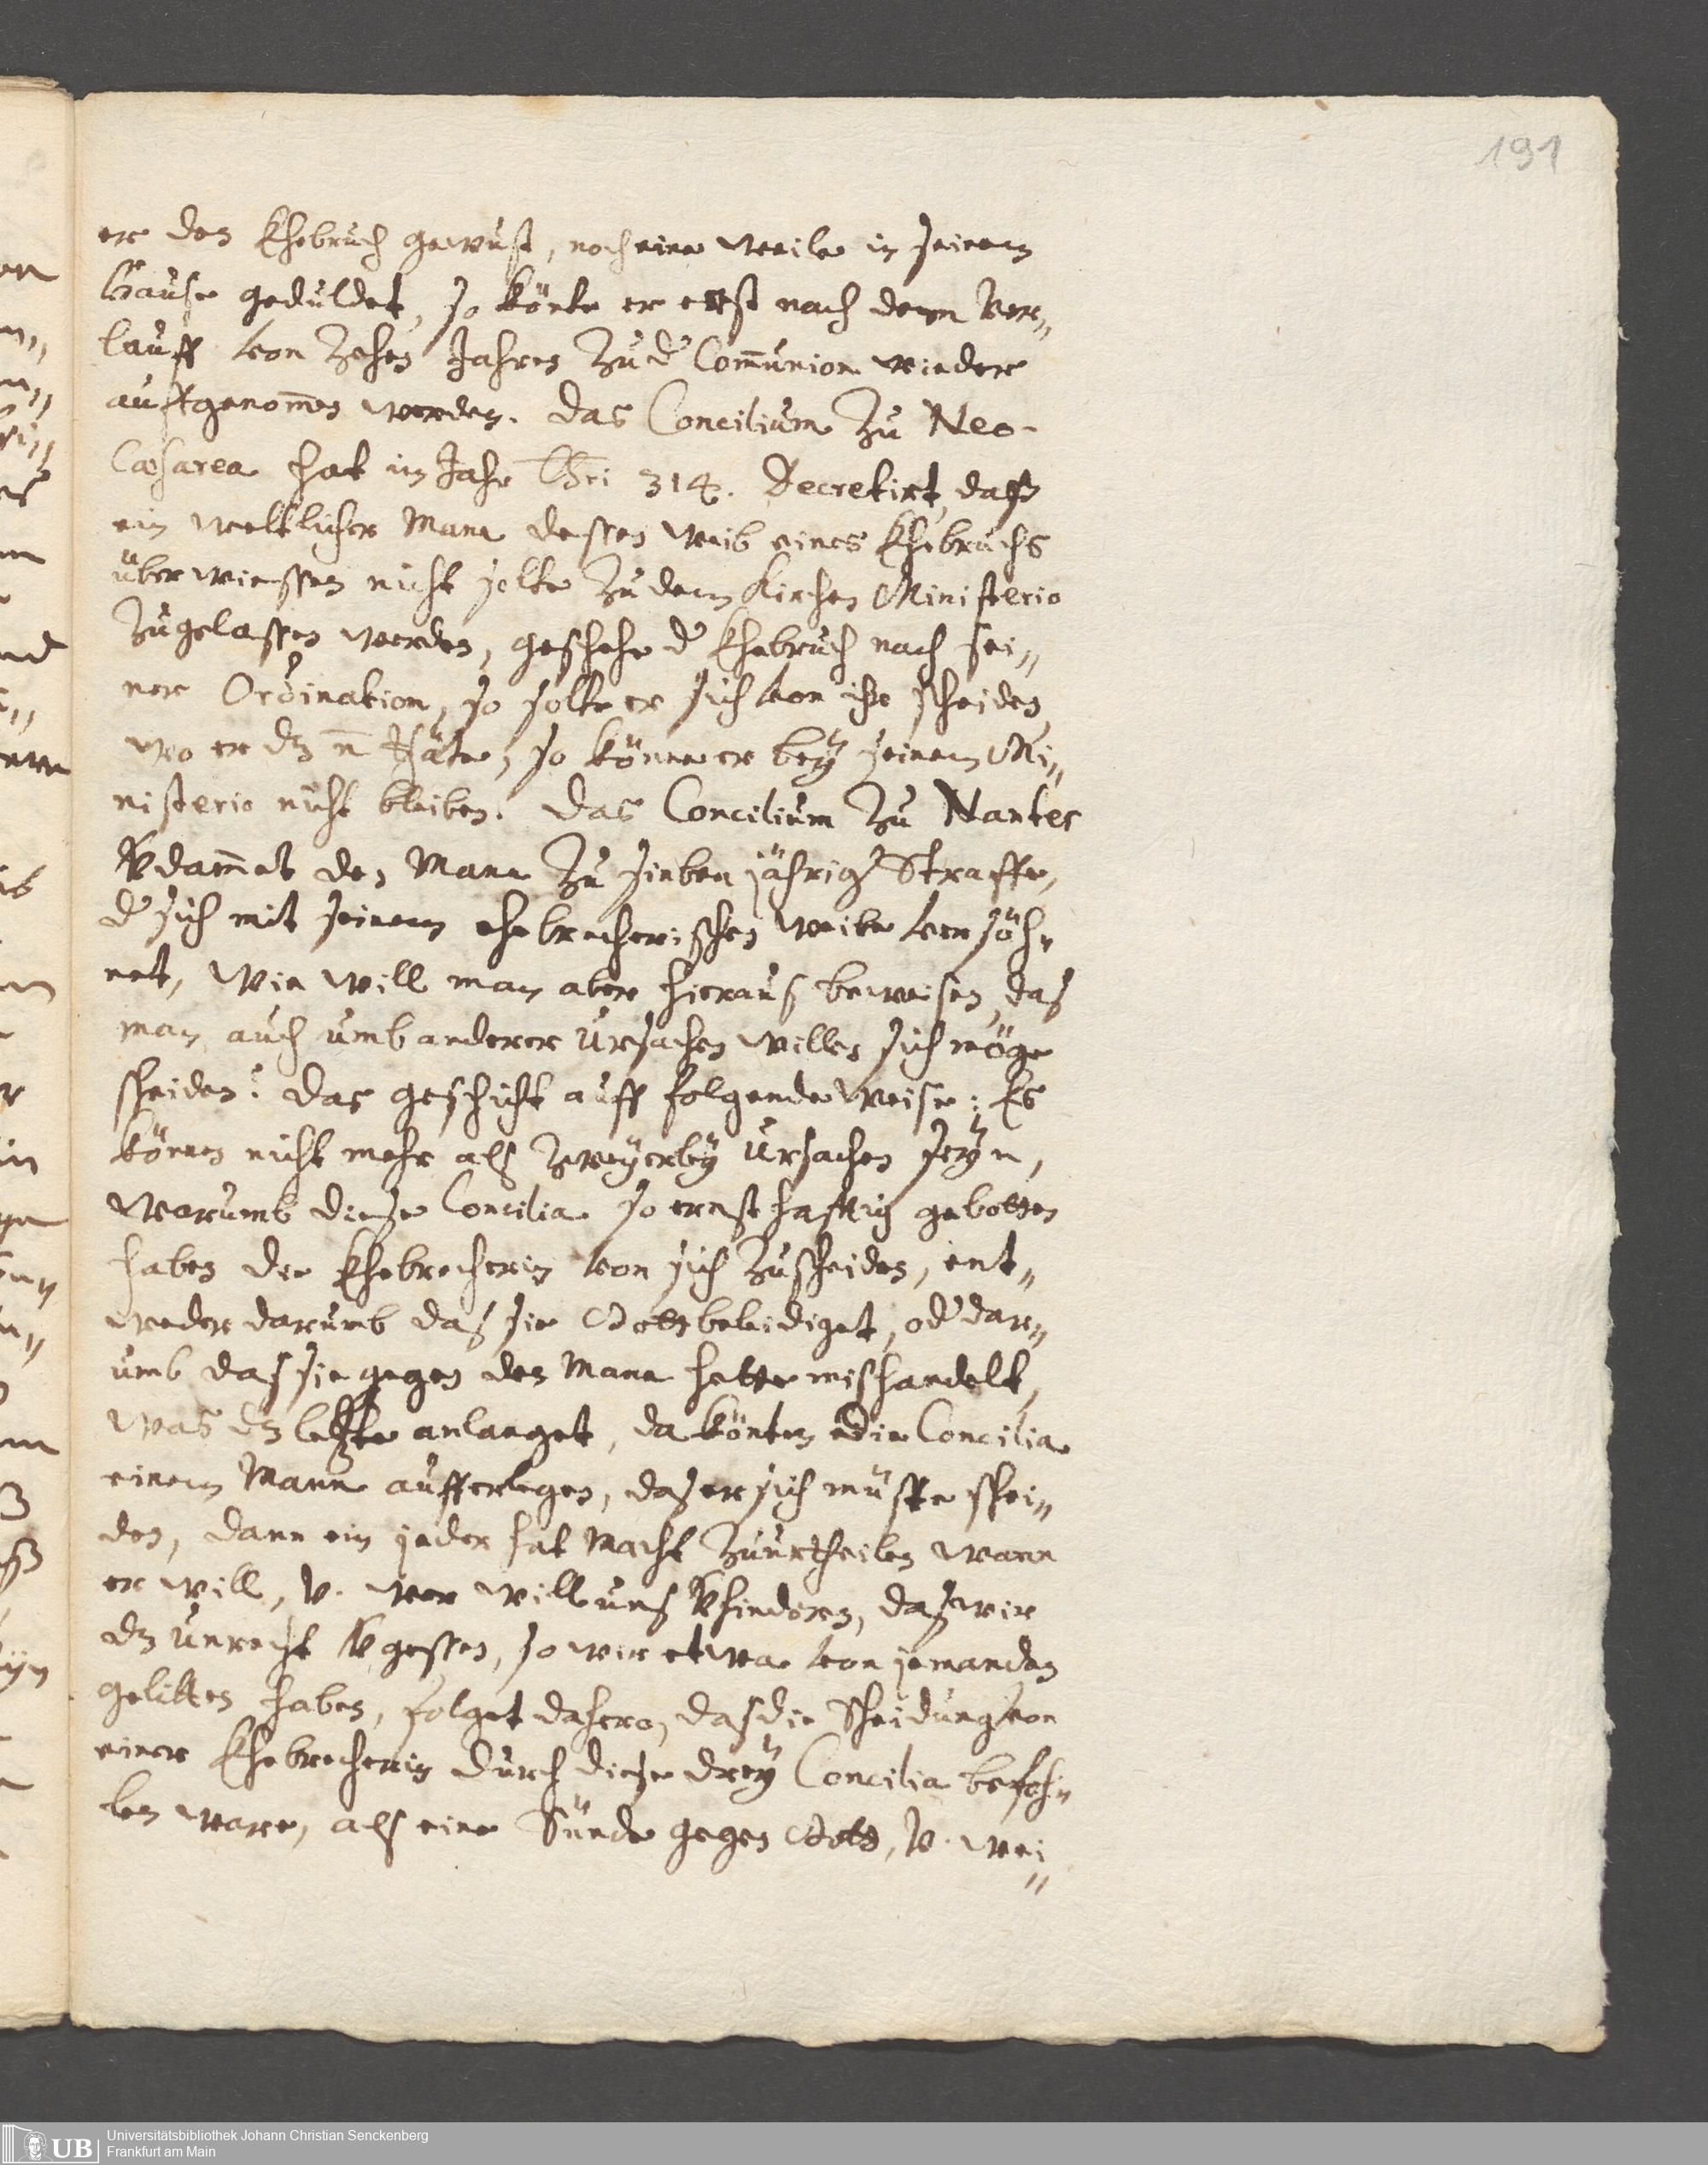 191
er den Ehebruch gewust, noch eine weile in seinem
Hause geduldet, so könte er erst nach dem Ver„
lauff von Zehen Jahren Zu d' Com̄union wieder
auffgenom̄en werden. Das Concilium Zu Neo-
Cæsarea hat im Jahr Chri 314. Decretirt, daß
ein weltlicher Mann dessen Weib eines Ehebruchs
überwiessen nicht solte Zu dem Kirchen Ministerio
Zugelassen werden, geschehe d' Ehebruch nach sei„
ner Ordination, so solte er sich von ihr scheiden,
wo er dz n̄ thäte, so könne er bey seinem Mi„
nisterio nicht bleiben. Das Concilium Zu Nantes
Vdam̄et den Mann Zu sieben jährig' Straffe,
d' sich mit seinem ehebrecherischen Weibe versöh„
net, Wie will man aber hieraus beweisen, das
man auch umb anderer Ursachen willen sich möge
scheiden? Das geschicht auff folgende Weise: Es
können nicht mehr als Zweyerley Ursachen seyn,
Warumb diese Concilia so ernsthafftig gebotten
haben der Ehebrecherin von sich Zuscheiden, ent„
weder darumb das sie Gott beleidiget, od' dar„
umb das sie gegen den Mann hette mishandelt,
Was dz letzte anlanget, da könten die Concilia
einem Mann aufferlegen, das er sich müste schei„
den, dann ein jeder hat Macht Zuurtheilen wann
er will, V. wer will uns Vhindern, das wir
dz Unrecht Vgessen, so wir etwa von jemanden
gelitten haben, folget dahero, das die Scheidung von
einer Ehebrecherin durch diese drey Concilia befoh„
len ware, als eine Sünde gegen Gott, V. wei„
UB Universitätsbibliothek Johann Christian Senckenberg
Frankfurt am Main